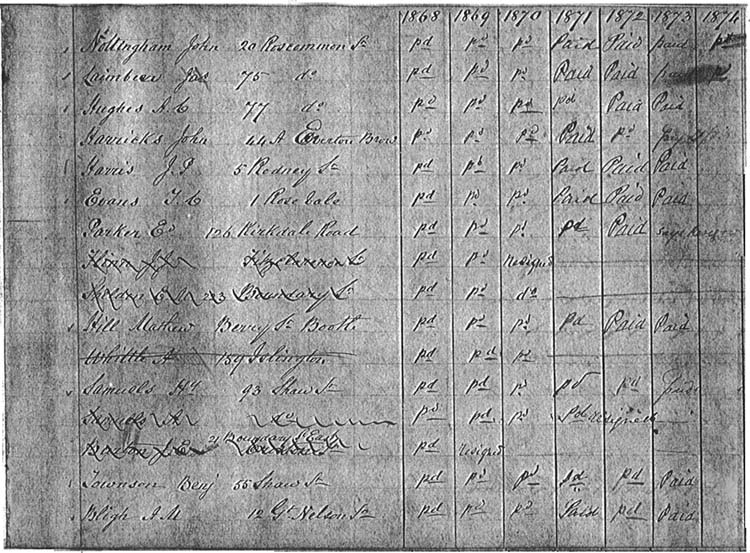 1868 1869 1870 1871 1872 1873 1874
Nottingham John 20 Roscommon St pd pd pd Paid Paid paid pd
Lambert Jas 75 do pd pd pd Paid Paid
Hughes A. C 77 do pd pd pd pd Paid Paid
Harricks John 44A Everton Brow pd pd pd Paid pd
Harris J. P 5 Rodney St pd pd pd Paid Paid Paid
Evans T. C 1 Rose Vale pd pd pd Paid Paid Paid
Parker Ed 126 Kirkdale Road pd pd pd pd Paid
pd pd resigned
Boundary St pd pd do
Hill Mathew Berry St Bootle pd pd pd pd Paid Paid
Whittle A 159 Islington pd pd pd
Samuels Hy 93 Shaw St pd pd pd pd pd
Samuels A do pd pd pd pd resigned
21 Boundary St East pd resigned
Townson Benj 55 Shaw St pd pd pd pd pd Paid
Bligh A M 12 Gt Nelson St pd pd pd Paid pd Paid